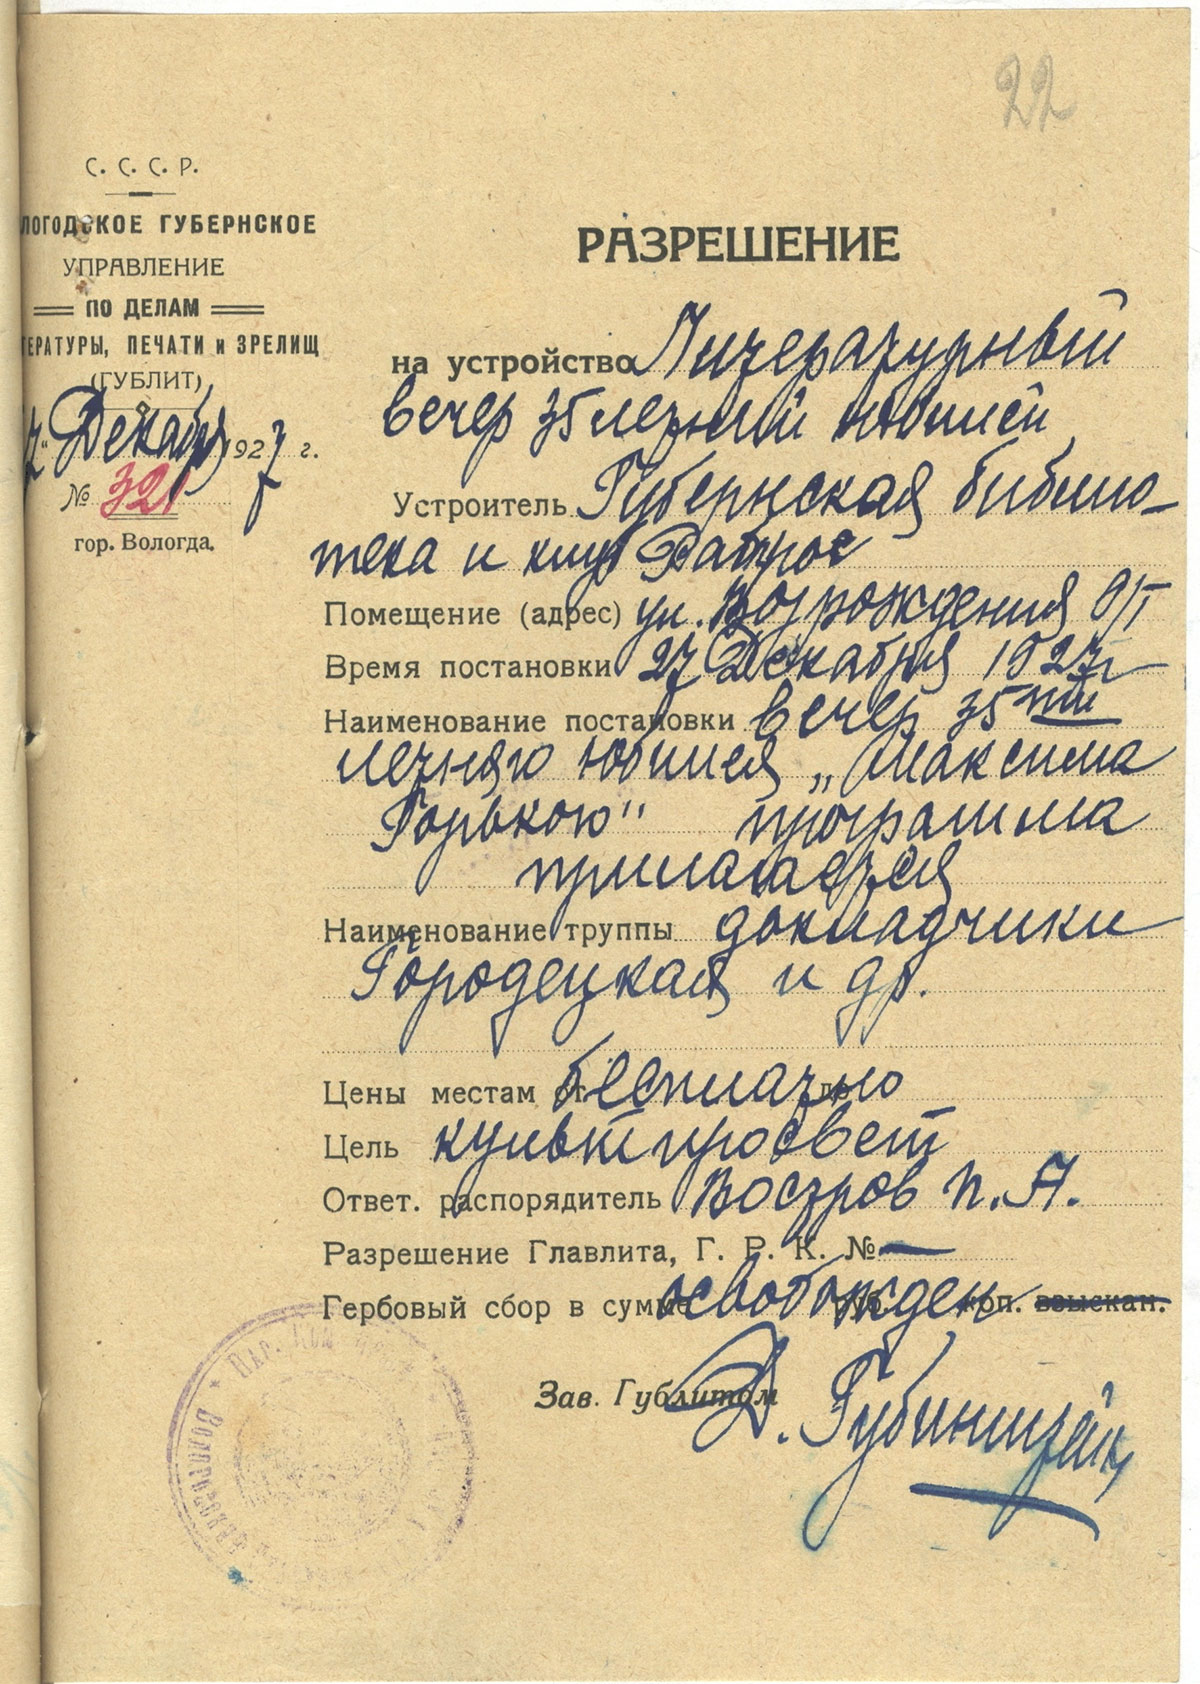 22
С. С. С. Р.
ЛОГОДСКОЕ ГУБЕРНСКОЕ
УПРАВЛЕНИЕ
ПО ДЕЛАМ
ТЕРАТУРЫ, ПЕЧАТИ и ЗРЕЛИЩ
(ГУБЛИТ)
Декабря 1927 г.
№ 321
гор. Вологда.
РАЗРЕШЕНИЕ
на устройство Литературный
вечер 35 летний юбилей
Устроитель Губернская библио-
тека и клуб
Помещение (адрес) ул. Возрождения
Время постановки 27 Декабря 1927 г
Наименование постановки вечер 35
летняго юбилея „Максима
Горького" программа
прилагается
Наименование труппы докладчики
Городецкая и др.
Цены местам от бесплатно до
Цель культпросвет
Ответ. распорядитель Востров П. А.
Разрешение Главлита, Г. Р. К. № —
Гербовый сбор в сумме освобожден руб. коп. взыскан.
Зав. Гублитом